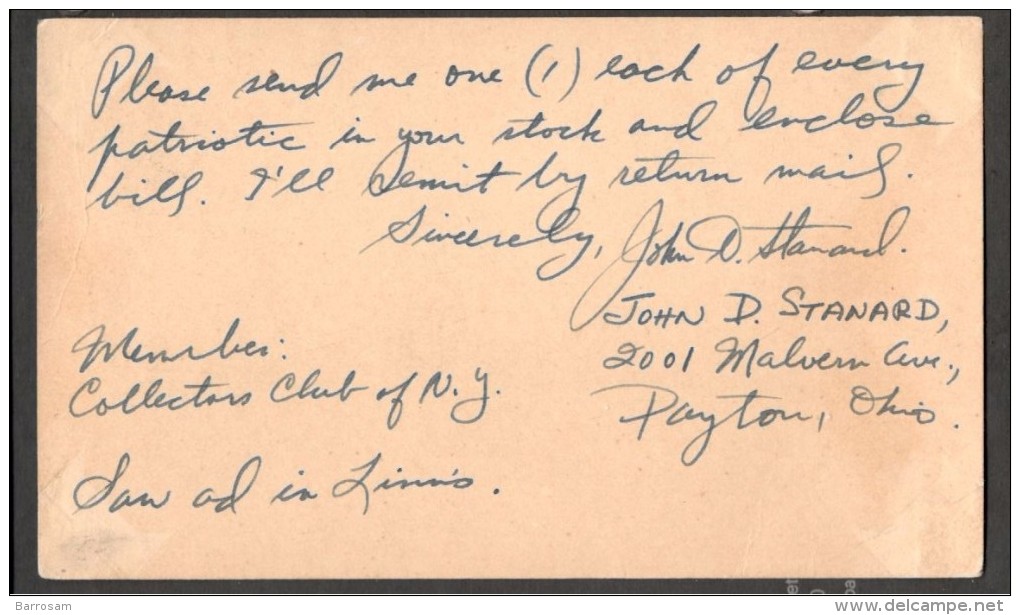 Please send me one (1) each of every
patriotic in your stock and enclose
bill. I'll remit by return mail.
Sincerely, John D. Stanard.
JOHN D. STANARD,
2001 Malvern Ave.,
Dayton, Ohio.
Member:
Collectors Club of N.Y.
Saw ad in Linn's.
Barrosam
www.delcampe.net